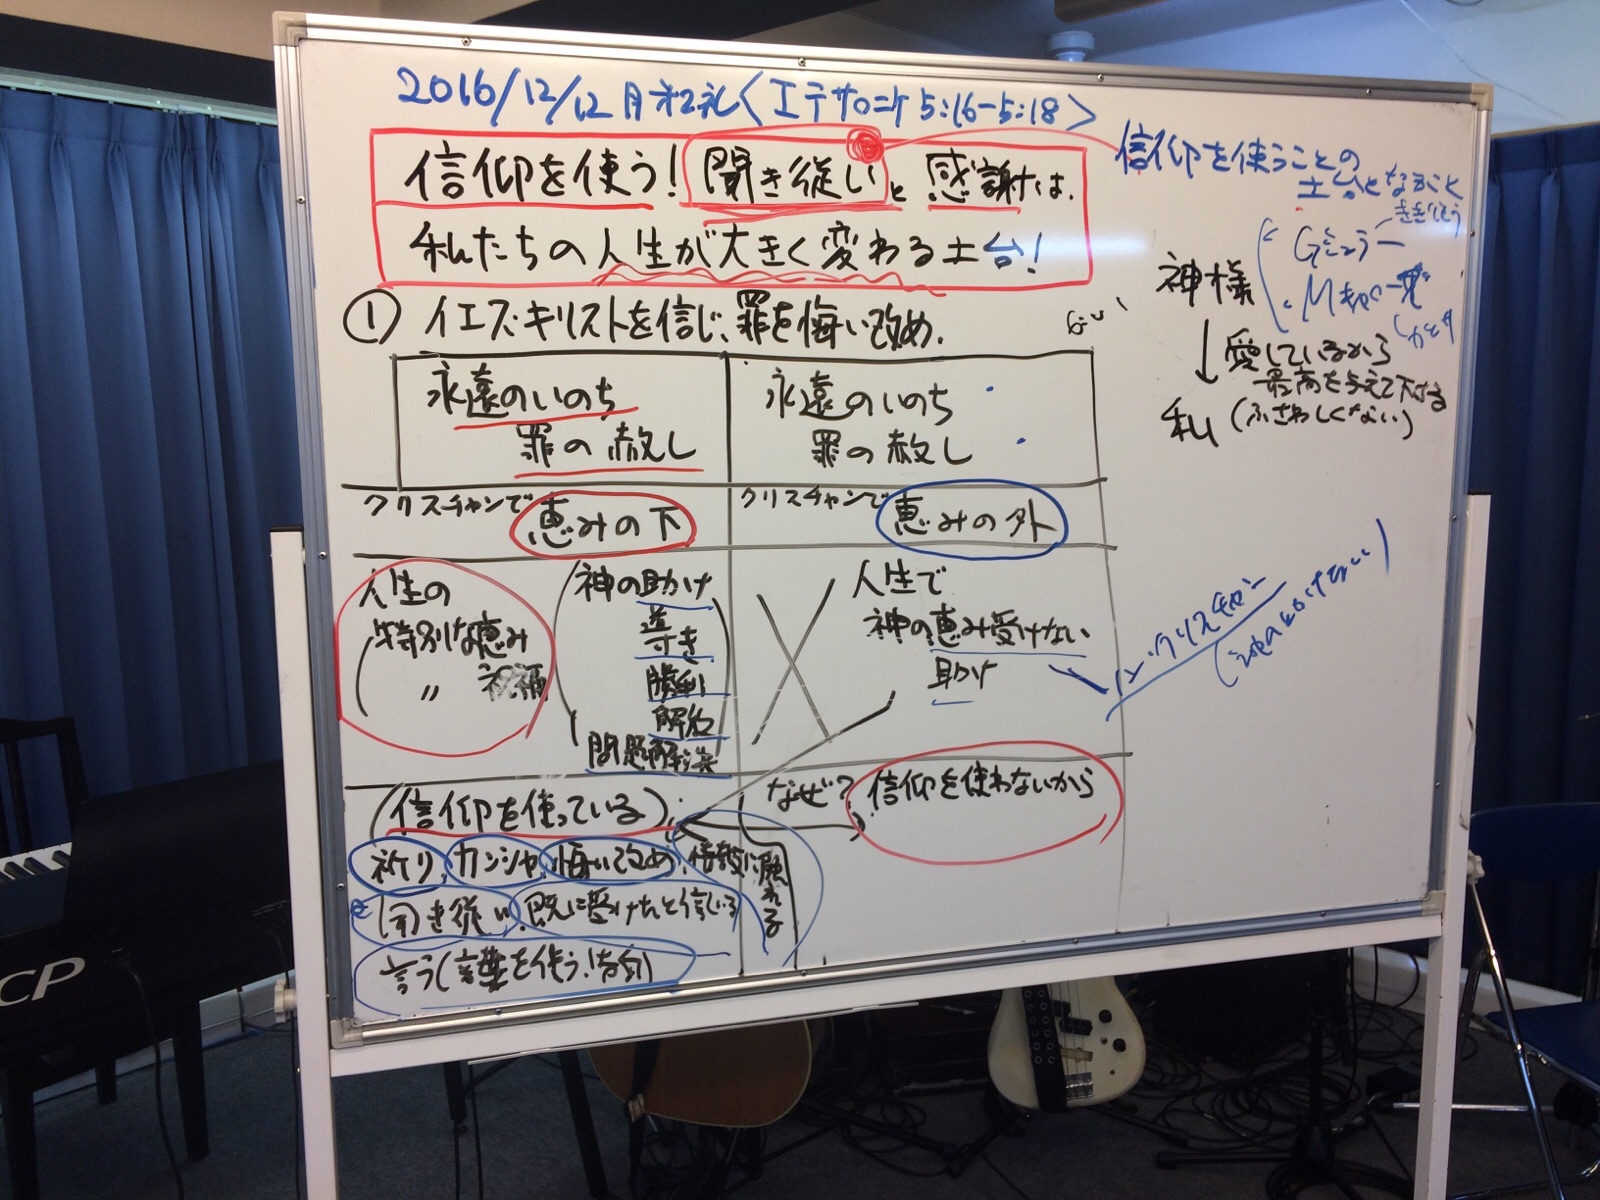 2016/12/12月 礼 <Iテサロニケ 5:16-5:18>
信仰を使う! 聞き従いと感謝は、
私たちの人生が大きく変わる土台!
① イエス・キリストを信じ、罪を悔い改め、
永遠のいのち
罪の赦し
永遠のいのち
罪の赦し
クリスチャンで 恵みの下
クリスチャンで 恵みの外
人生の
特別な恵み
〃 祝福
神の助け
導き
勝利
解放
問題解決
人生で
神の恵み受けない
助け
(信仰を使っている)
なぜ? 信仰を使わないから
祈り、カンシャ、悔い改め、
聞き従い、既に受けたと信じる
言う(言葉を使う!
信仰を使うことの
土台となること
ききしたがう
神様
↓ 愛しているから
最高を与えて下さる
私 (ふさわしくない)
CP